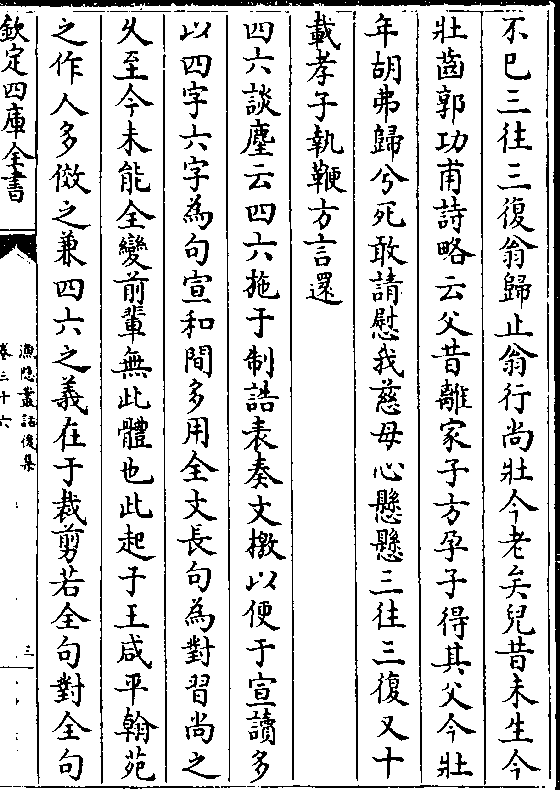 不已三往三復翁歸止翁行尚壯今老矣兒昔未生今
壯齒郭功甫詩略云父昔離家子方孕子得其父今壯
年胡弗歸兮死敢請慰我慈母心懸懸三往三復又十
載孝子執鞭方言還
四六談麈云四六拖于制誥表奏文檄以便于宣讀多
以四字六字為句宣和間多用全文長句為對習尚之
久至今未能全變前輩無此體也此起于王咸平翰苑
之作人多倣之兼四六之義在于裁剪若全句對全句
欽定四庫全書
漁隱叢話後集
卷三十六
三